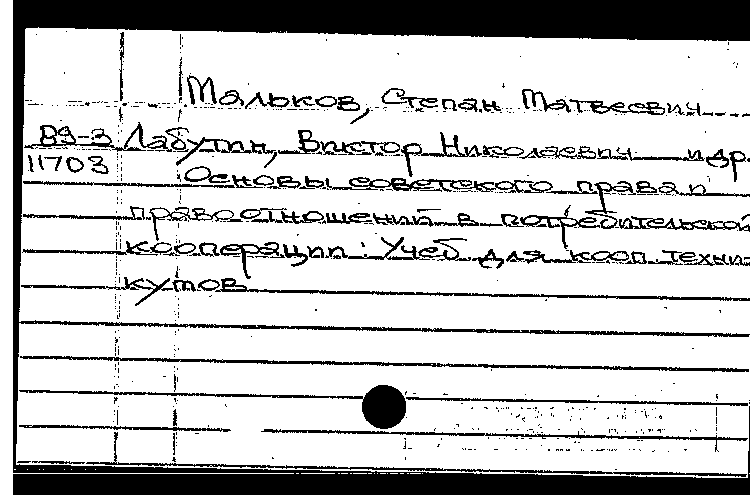 Мальков, Степан Матвеевич
89-3 Лабутин, Виктор Николаевич и др.
11703 Основы советского права и
правоотношений в потребительской
кооперации: Учеб для кооп. техни-
кумов